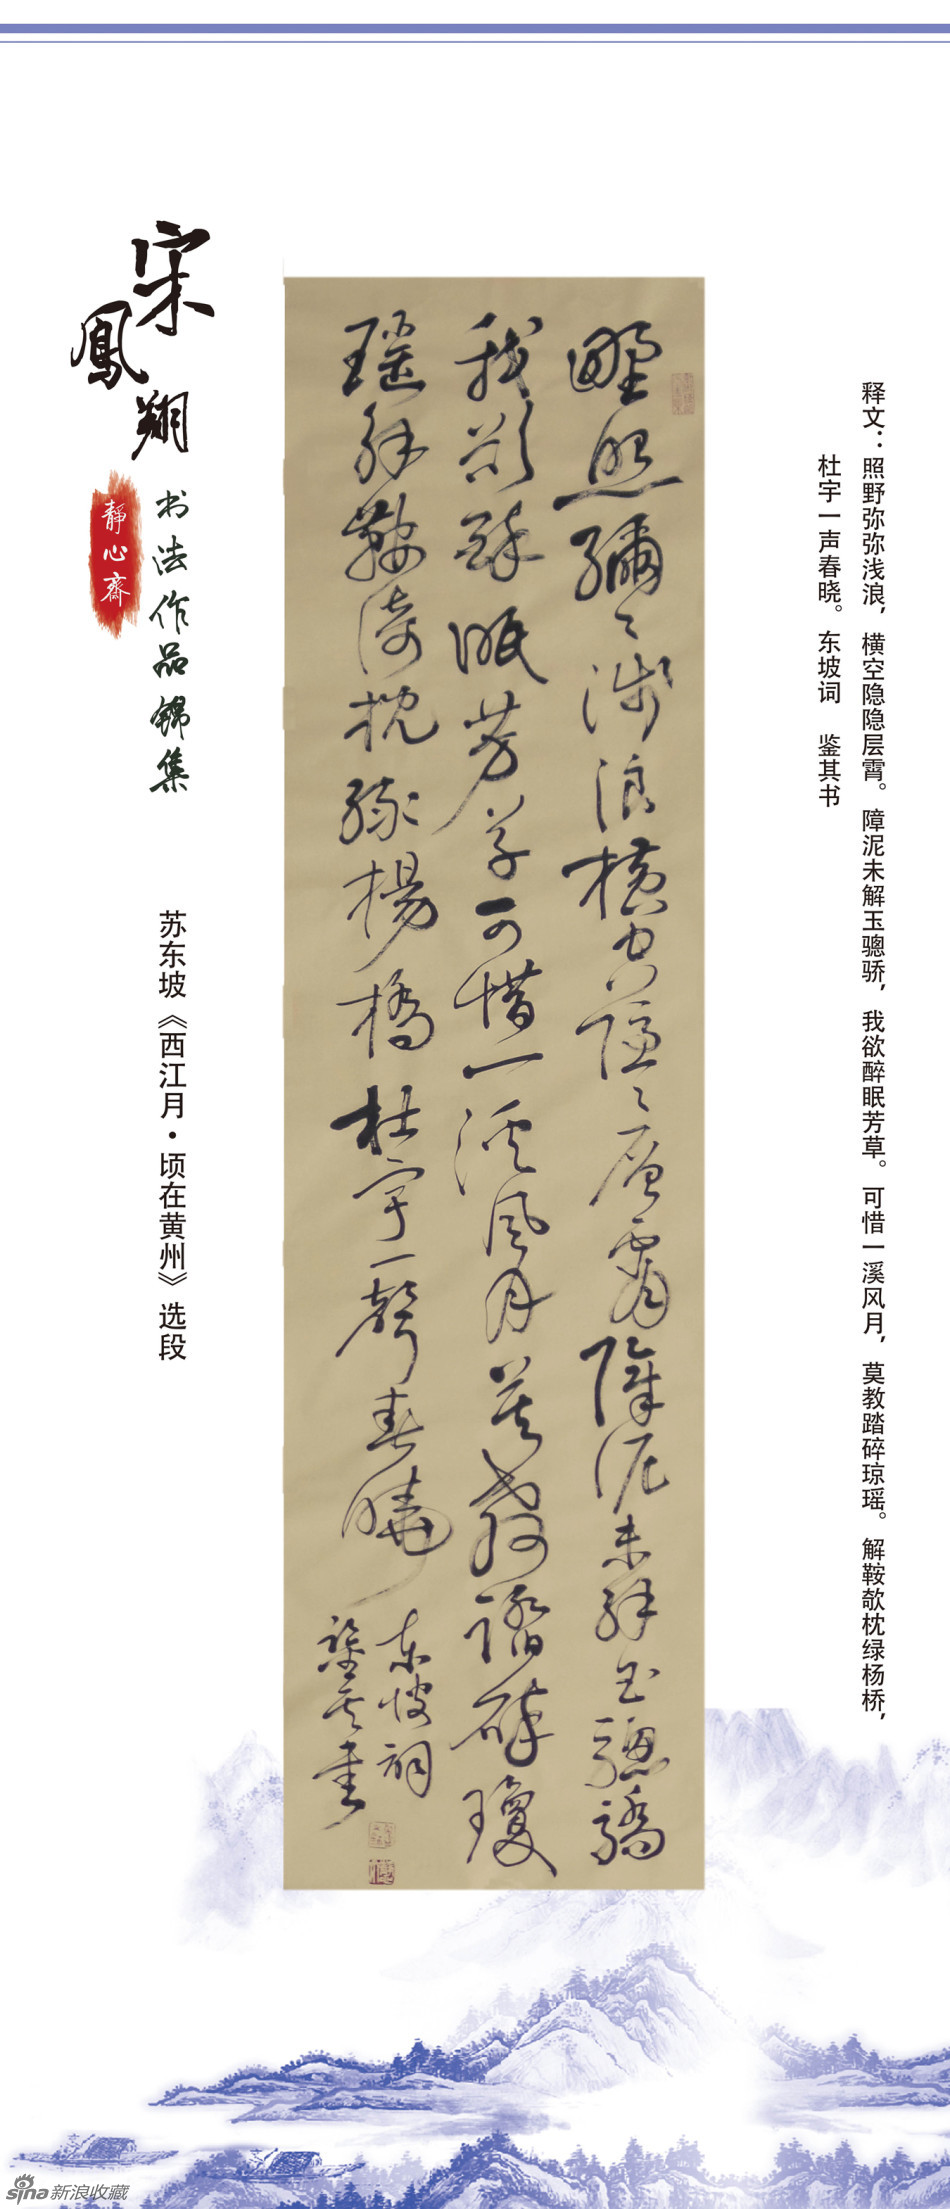 释文：照野弥弥浅浪，横空隐隐层霄。障泥未解玉骢骄，我欲醉眠芳草。可惜一溪风月，莫教踏碎琼瑶。解鞍欹枕绿杨桥，
杜宇一声春晓。东坡词　鉴其书
野照彌々淺浪橫空隱々層霄障泥未解玉驄驕
我欲醉眠芳草可惜一溪風月莫教踏碎瓊
瑤解鞍倚枕綠楊橋杜宇一聲春曉
東坡詞
鑒其書
宋鳳翔
书法作品锦集
靜心齋
苏东坡《西江月·顷在黄州》选段
sina新浪收藏